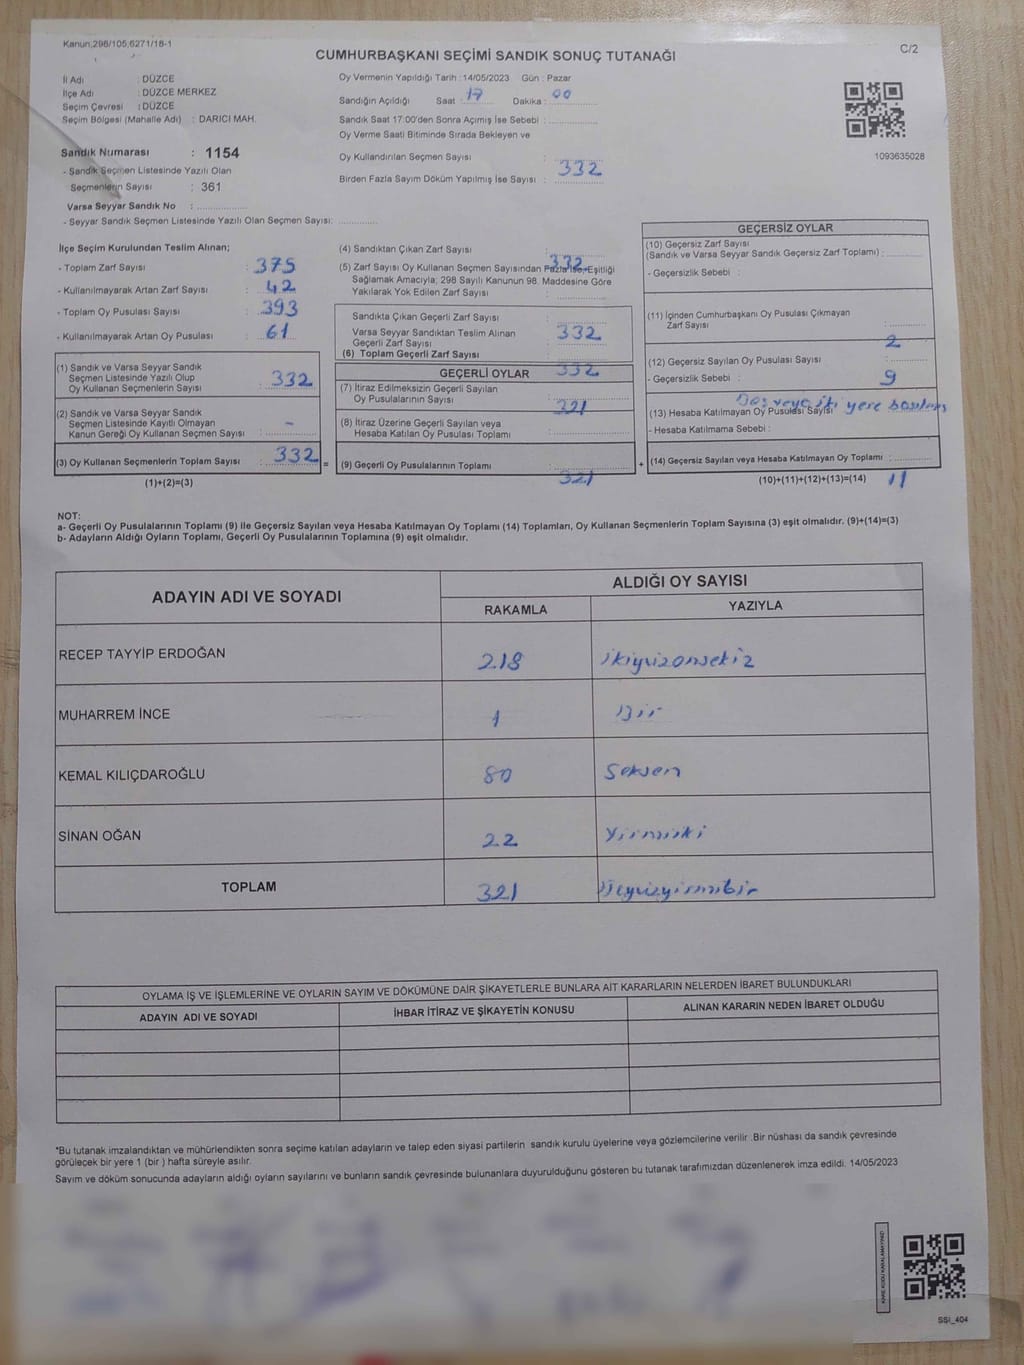 Kanun,298/105,6271/18-1
C/2
CUMHURBAŞKANI SEÇİMİ SANDIK SONUÇ TUTANAĞI
İl Adı : DÜZCE
İlçe Adı : DÜZCE MERKEZ
Seçim Çevresi : DÜZCE
Seçim Bölgesi (Mahalle Adı) : DARICI MAH.
Sandık Numarası : 1154
- Sandık Seçmen Listesinde Yazılı Olan
Seçmenlerin Sayısı : 361
Varsa Seyyar Sandık No :
- Seyyar Sandık Seçmen Listesinde Yazılı Olan Seçmen Sayısı:
Oy Vermenin Yapıldığı Tarih : 14/05/2023 Gün : Pazar
Sandığın Açıldığı Saat : 17 Dakika : 00
Sandık Saat 17:00'den Sonra Açımış İse Sebebi :
Oy Verme Saati Bitiminde Sırada Bekleyen ve
Oy Kullandırılan Seçmen Sayısı :
332
Birden Fazla Sayım Döküm Yapılmış İse Sayısı :
1093635028
İlçe Seçim Kurulundan Teslim Alınan;
- Toplam Zarf Sayısı : 375
- Kullanılmayarak Artan Zarf Sayısı : 42
- Toplam Oy Pusulası Sayısı : 393
- Kullanılmayarak Artan Oy Pusulası : 61
(1) Sandık ve Varsa Seyyar Sandık
Seçmen Listesinde Yazılı Olup
Oy Kullanan Seçmenlerin Sayısı : 332
(2) Sandık ve Varsa Seyyar Sandık
Seçmen Listesinde Kayıtlı Olmayan
Kanun Gereği Oy Kullanan Seçmen Sayısı : -
(3) Oy Kullanan Seçmenlerin Toplam Sayısı : 332 =
(1)+(2)=(3)
(4) Sandıktan Çıkan Zarf Sayısı :
332
(5) Zarf Sayısı Oy Kullanan Seçmen Sayısından Fazla İse, Eşitliği
Sağlamak Amacıyla; 298 Sayılı Kanunun 98. Maddesine Göre
Yakılarak Yok Edilen Zarf Sayısı :
Sandıkta Çıkan Geçerli Zarf Sayısı :
Varsa Seyyar Sandıktan Teslim Alınan
Geçerli Zarf Sayısı : 332
(6) Toplam Geçerli Zarf Sayısı :
332
GEÇERLİ OYLAR
(7) İtiraz Edilmeksizin Geçerli Sayılan
Oy Pusulalarının Sayısı :
321
(8) İtiraz Üzerine Geçerli Sayılan veya
Hesaba Katılan Oy Pusulası Toplamı :
(9) Geçerli Oy Pusulalarının Toplamı : +
321
GEÇERSİZ OYLAR
(10) Geçersiz Zarf Sayısı
(Sandık ve Varsa Seyyar Sandık Geçersiz Zarf Toplamı) :
- Geçersizlik Sebebi :
(11) İçinden Cumhurbaşkanı Oy Pusulası Çıkmayan
Zarf Sayısı :
2
(12) Geçersiz Sayılan Oy Pusulası Sayısı :
- Geçersizlik Sebebi : 9
Boş veya iki yere basılmış
(13) Hesaba Katılmayan Oy Pusulası Sayısı
- Hesaba Katılmama Sebebi :
(14) Geçersiz Sayılan veya Hesaba Katılmayan Oy Toplamı :
(10)+(11)+(12)+(13)=(14) 11
NOT:
a- Geçerli Oy Pusulalarının Toplamı (9) ile Geçersiz Sayılan veya Hesaba Katılmayan Oy Toplamı (14) Toplamları, Oy Kullanan Seçmenlerin Toplam Sayısına (3) eşit olmalıdır. (9)+(14)=(3)
b- Adayların Aldığı Oyların Toplamı, Geçerli Oy Pusulalarının Toplamına (9) eşit olmalıdır.
ADAYIN ADI VE SOYADI
ALDIĞI OY SAYISI
RAKAMLA YAZIYLA
RECEP TAYYİP ERDOĞAN 218 ikiyüzonsekiz
MUHARREM İNCE 1 Bir
KEMAL KILIÇDAROĞLU 80 Seksen
SİNAN OĞAN 22 Yirmiiki
TOPLAM 321 Üçyüzyirmibir
OYLAMA İŞ VE İŞLEMLERİNE VE OYLARIN SAYIM VE DÖKÜMÜNE DAİR ŞİKAYETLERLE BUNLARA AİT KARARLARIN NELERDEN İBARET BULUNDUKLARI
ADAYIN ADI VE SOYADI İHBAR İTİRAZ VE ŞİKAYETİN KONUSU ALINAN KARARIN NEDEN İBARET OLDUĞU
*Bu tutanak imzalandıktan ve mühürlendikten sonra seçime katılan adayların ve talep eden siyasi partilerin sandık kurulu üyelerine veya gözlemcilerine verilir .Bir nüshası da sandık çevresinde
görülecek bir yere 1 (bir ) hafta süreyle asılır.
Sayım ve döküm sonucunda adayların aldığı oyların sayılarını ve bunların sandık çevresinde bulunanlara duyurulduğunu gösteren bu tutanak tarafımızdan düzenlenerek imza edildi. 14/05/2023
KARE KODU KARALAMAYINIZ!
SSI_404